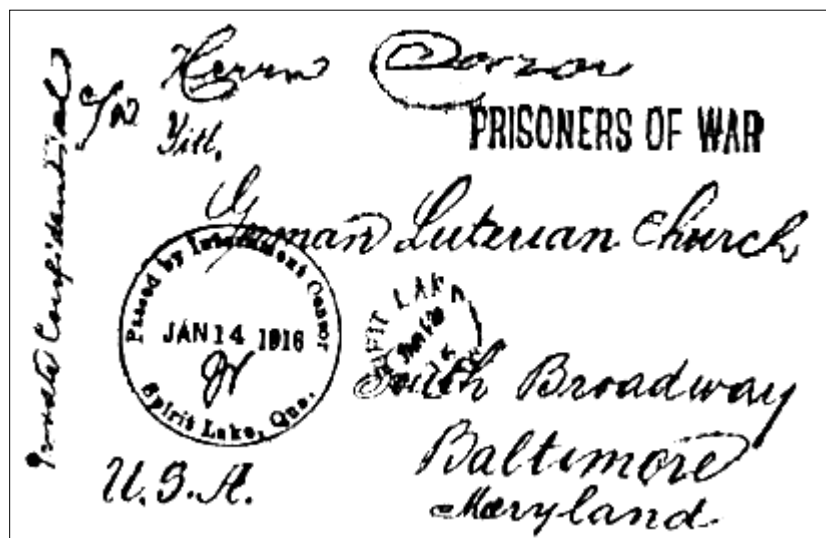 Private Confidential
c/o Herrn
PRISONERS OF WAR
German Luterian Church
Passed by Internment Censor
JAN 14 1916
Spirit Lake, Que.
SPIRIT LAKE
South Broadway
Baltimore
U.S.A.
Maryland